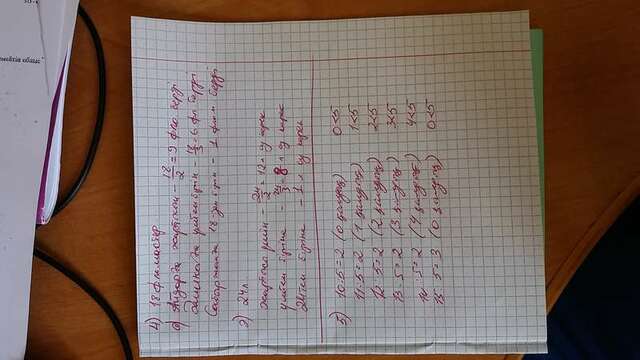 4) 18 фломастер
а) Айдарға жартысын - 18/2 = 9 фло берді
үштен бірін - 18/3 = 6 фл берді
18-ден бірін - 1 флом берді
2) 24 л
жартысы үшін - 24/2 = 12 л су керек
үштен біріне - 24/3 = 8 л су керек
24тен біріне - 1 л су керек
5) 10:5=2 (0 қалдық) 0<5
11:5=2 (1 қалдық) 1<5
12:5=2 (2 қалдық) 2<5
13:5=2 (3 қалдық) 3<5
14:5=2 (4 қалдық) 4<5
15:5=3 (0 қалдық) 0<5